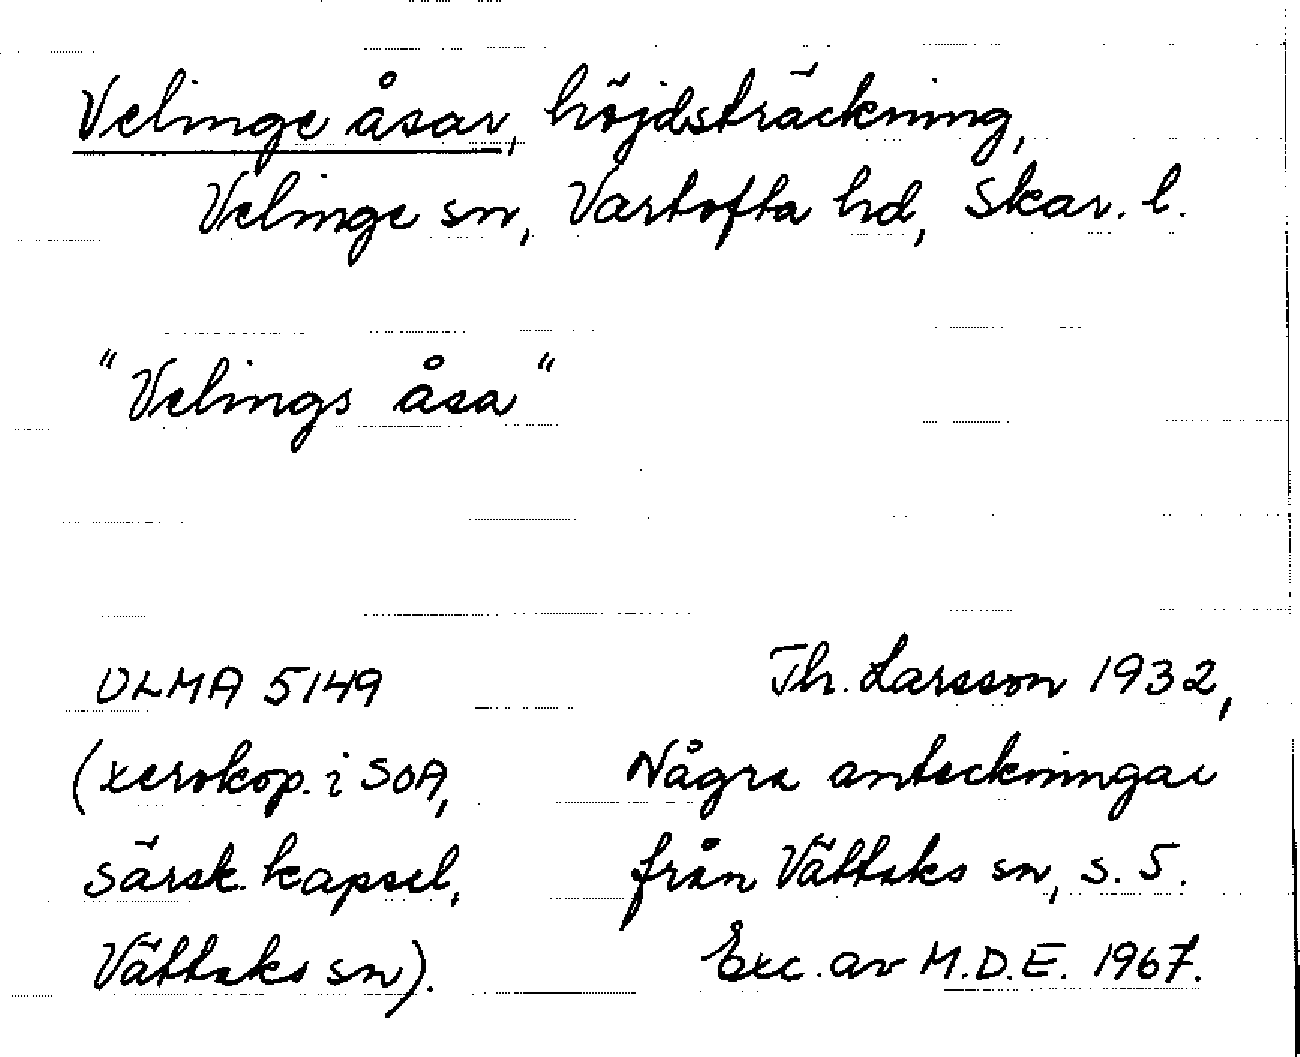 Velinge åsar, höjdsträckning,
Velinge sn, Vartofta hd, Skar. l.
"Velings åsa"
ULMA 5149
(xerokop. i SOA,
särsk. kapsel,
Vättaks sn).
Th. Larsson 1932,
Några anteckningar
från Vättaks sn, s. 5.
Exc. av M.D.E. 1967.